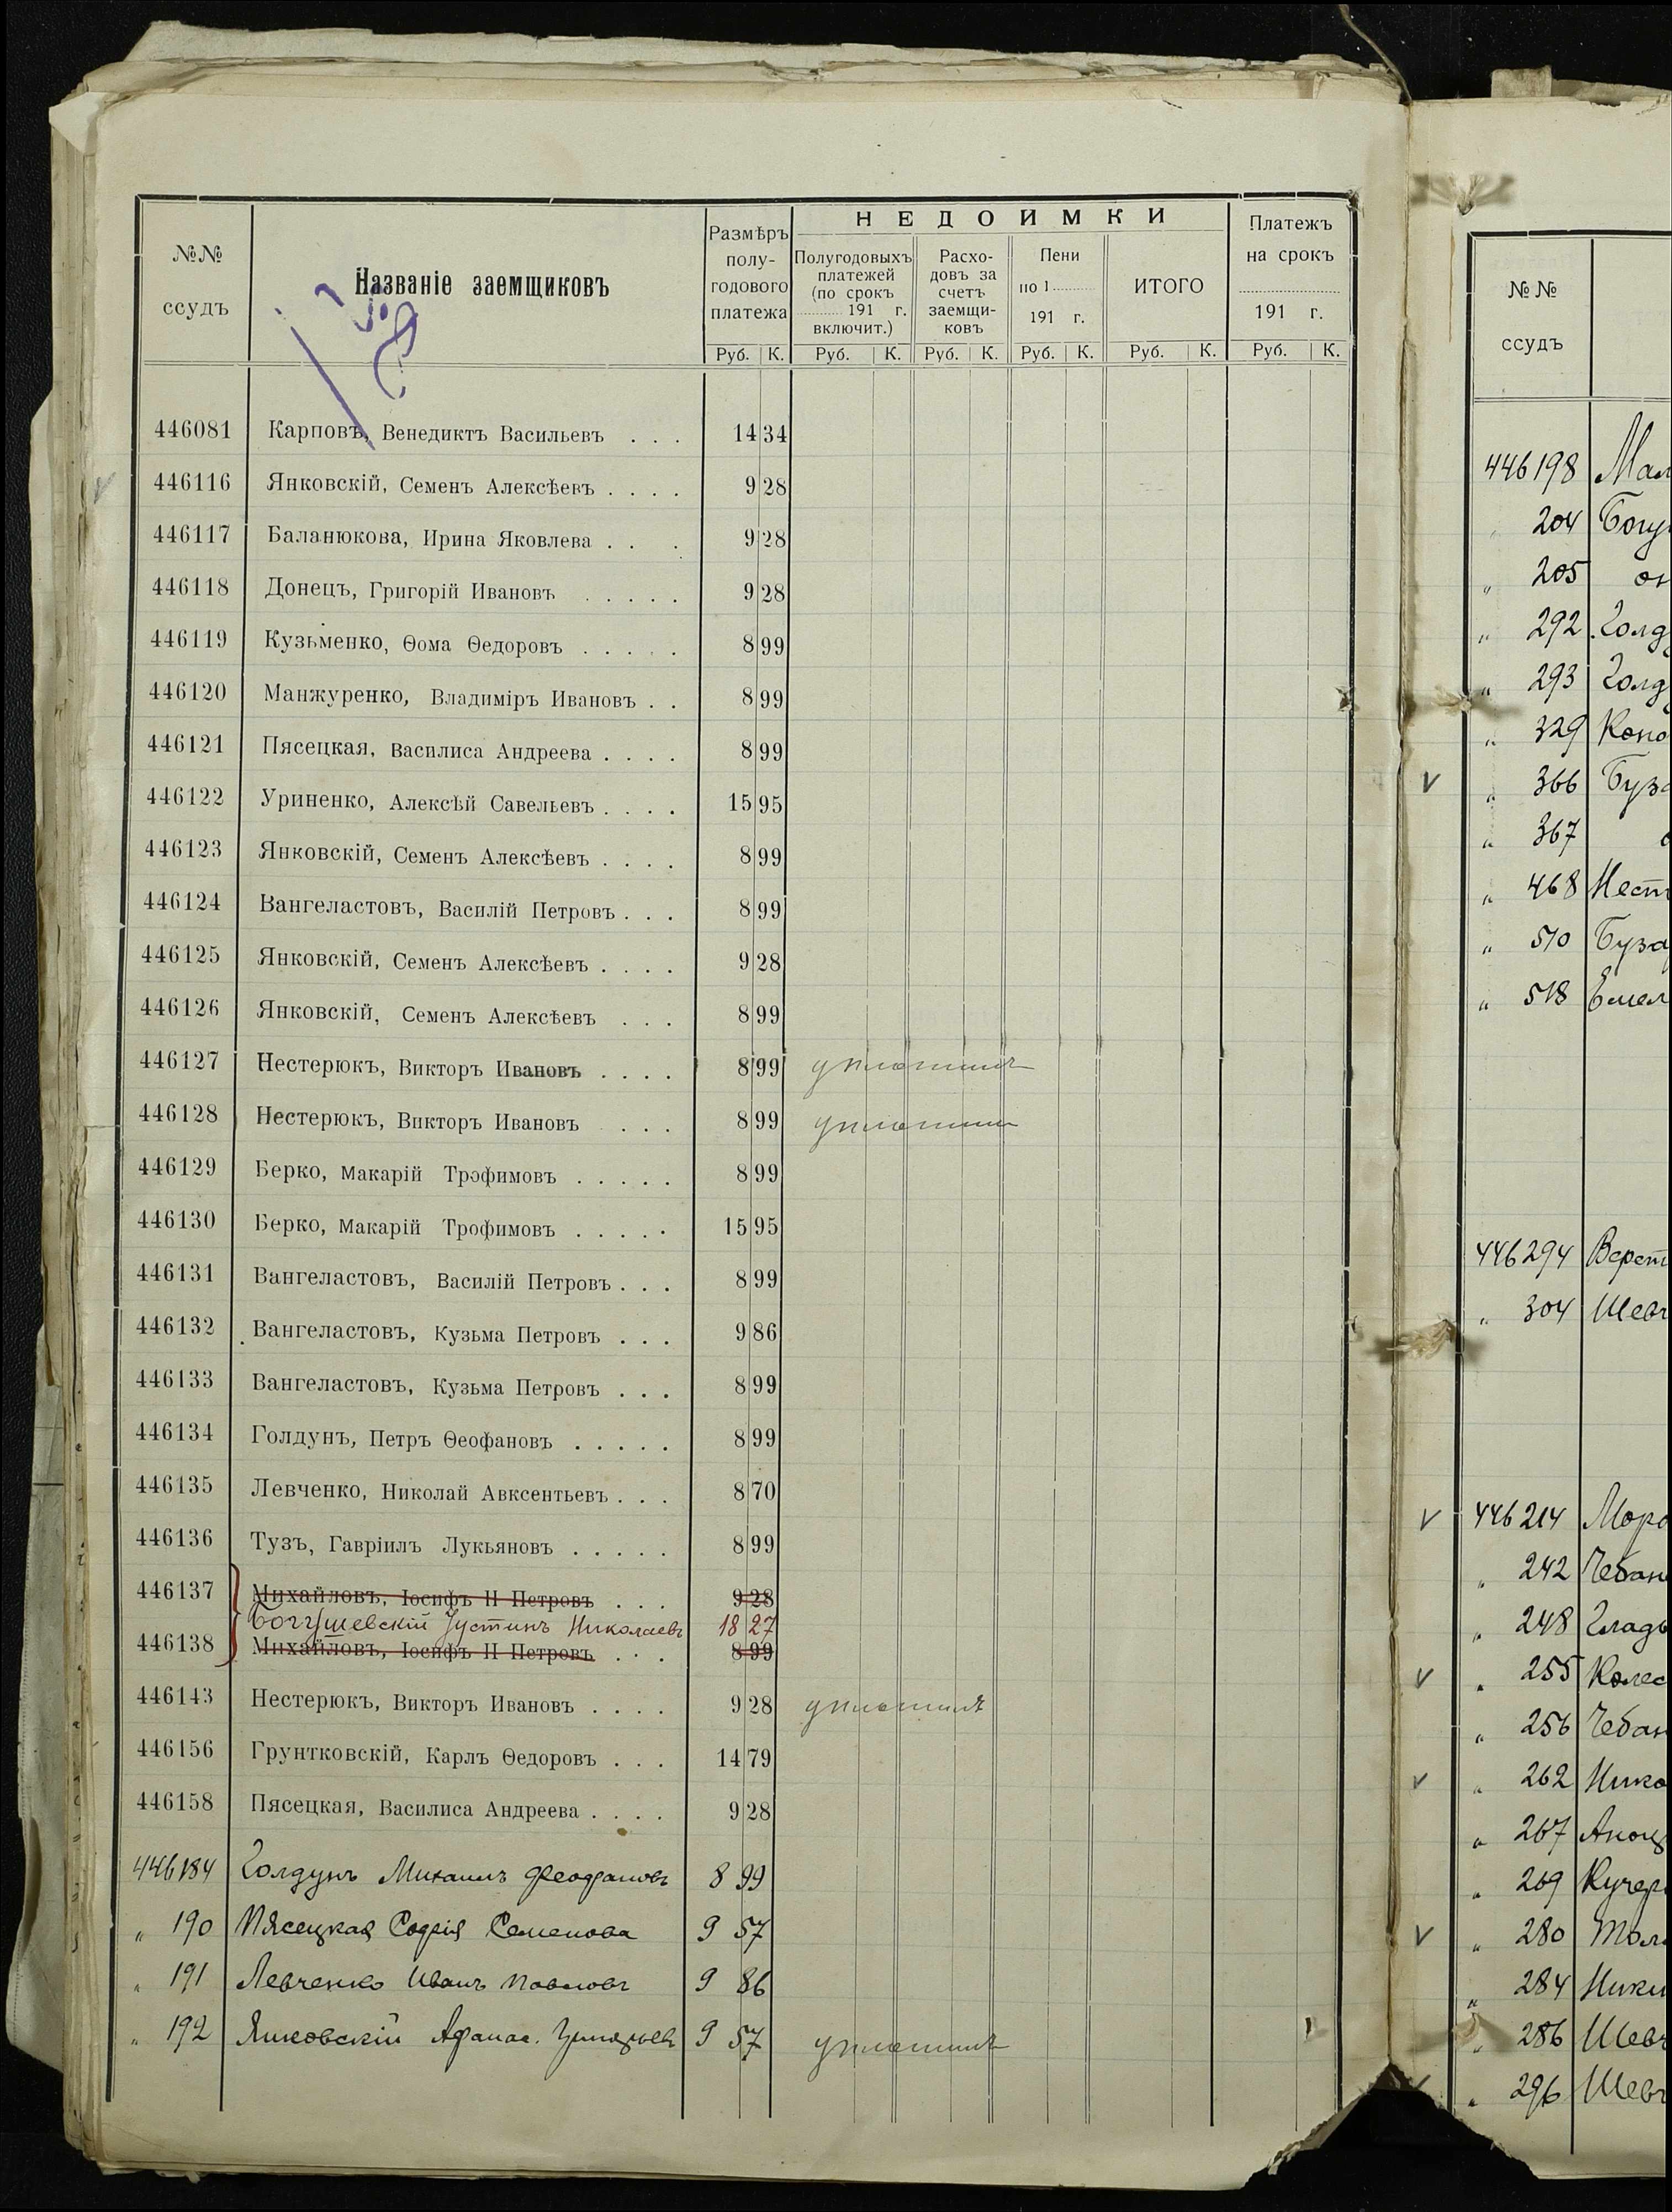 №№ ссудъ
Названіе заемщиковъ
Размѣръ полу-годового платежа
НЕДОИМКИ
Полугодовыхъ платежей (по срокъ ......... 191 г. включит.)
Расхо-довъ за счетъ заемщи-ковъ
Пени по 1......... 191 г.
ИТОГО
Платежъ на срокъ ......... 191 г.
Руб. К. Руб. К. Руб. К. Руб. К. Руб. К. Руб. К.
446081 Карповъ, Венедиктъ Васильевъ . . . 14 34
446116 Янковскій, Семенъ Алексѣевъ . . . . 9 28
446117 Баланюкова, Ирина Яковлева . . . 9 28
446118 Донецъ, Григорій Ивановъ . . . . . 9 28
446119 Кузьменко, Ѳома Ѳедоровъ . . . . . 8 99
446120 Манжуренко, Владиміръ Ивановъ . . 8 99
446121 Пясецкая, Василиса Андреева . . . . 8 99
446122 Уриненко, Алексѣй Савельевъ . . . . 15 95
446123 Янковскій, Семенъ Алексѣевъ . . . . 8 99
446124 Вангеластовъ, Василій Петровъ . . . 8 99
446125 Янковскій, Семенъ Алексѣевъ . . . . 9 28
446126 Янковскій, Семенъ Алексѣевъ . . . 8 99
446127 Нестерюкъ, Викторъ Ивановъ . . . . 8 99 уплотилъ
446128 Нестерюкъ, Викторъ Ивановъ . . . 8 99
446129 Берко, Макарій Трофимовъ . . . . . 8 99
446130 Берко, Макарій Трофимовъ . . . . . 15 95
446131 Вангеластовъ, Василій Петровъ . . . 8 99
446132 Вангеластовъ, Кузьма Петровъ . . . 9 86
446133 Вангеластовъ, Кузьма Петровъ . . . 8 99
446134 Голдунъ, Петръ Ѳеофановъ . . . . . 8 99
446135 Левченко, Николай Авксентьевъ . . . 8 70
446136 Тузъ, Гавріилъ Лукьяновъ . . . . . 8 99
446137 Михайловъ, Іосифъ II Петровъ . . . 9 28
Богушевскій Іустинъ Николаевъ 18 27
446138 Михайловъ, Іосифъ II Петровъ . . . 8 99
446143 Нестерюкъ, Викторъ Ивановъ . . . . 9 28 уплотилъ
446156 Грунтковскій, Карлъ Ѳедоровъ . . . 14 79
446158 Пясецкая, Василиса Андреева . . . . 9 28
446184 Голдунъ Михаилъ Феофановъ 8 99
„ 190 Пясецкая Софія Семенова 9 57
„ 191 Левченко Иванъ Павловъ 9 86
„ 192 Янковскій Афанас. 9 57 уплотилъ
№№ ссудъ
446198 Мал
204 Богу
„ 205 он
„ 292 Голд
„ 293 Голд
„ 329 Коно
„ 366 Буза
„ 367
„ 468 Нест
„ 510 Буза
„ 518 Емел
446294 Верет
„ 304 Шевч
446214 Моро
„ 242 Чебан
„ 248 Гладь
„ 255 Колес
„ 256 Чебан
„ 262 Нико
„ 267
„ 269 Кучер
„ 280
„ 284 Ники
„ 286 Шевч
„ 296 Шевч